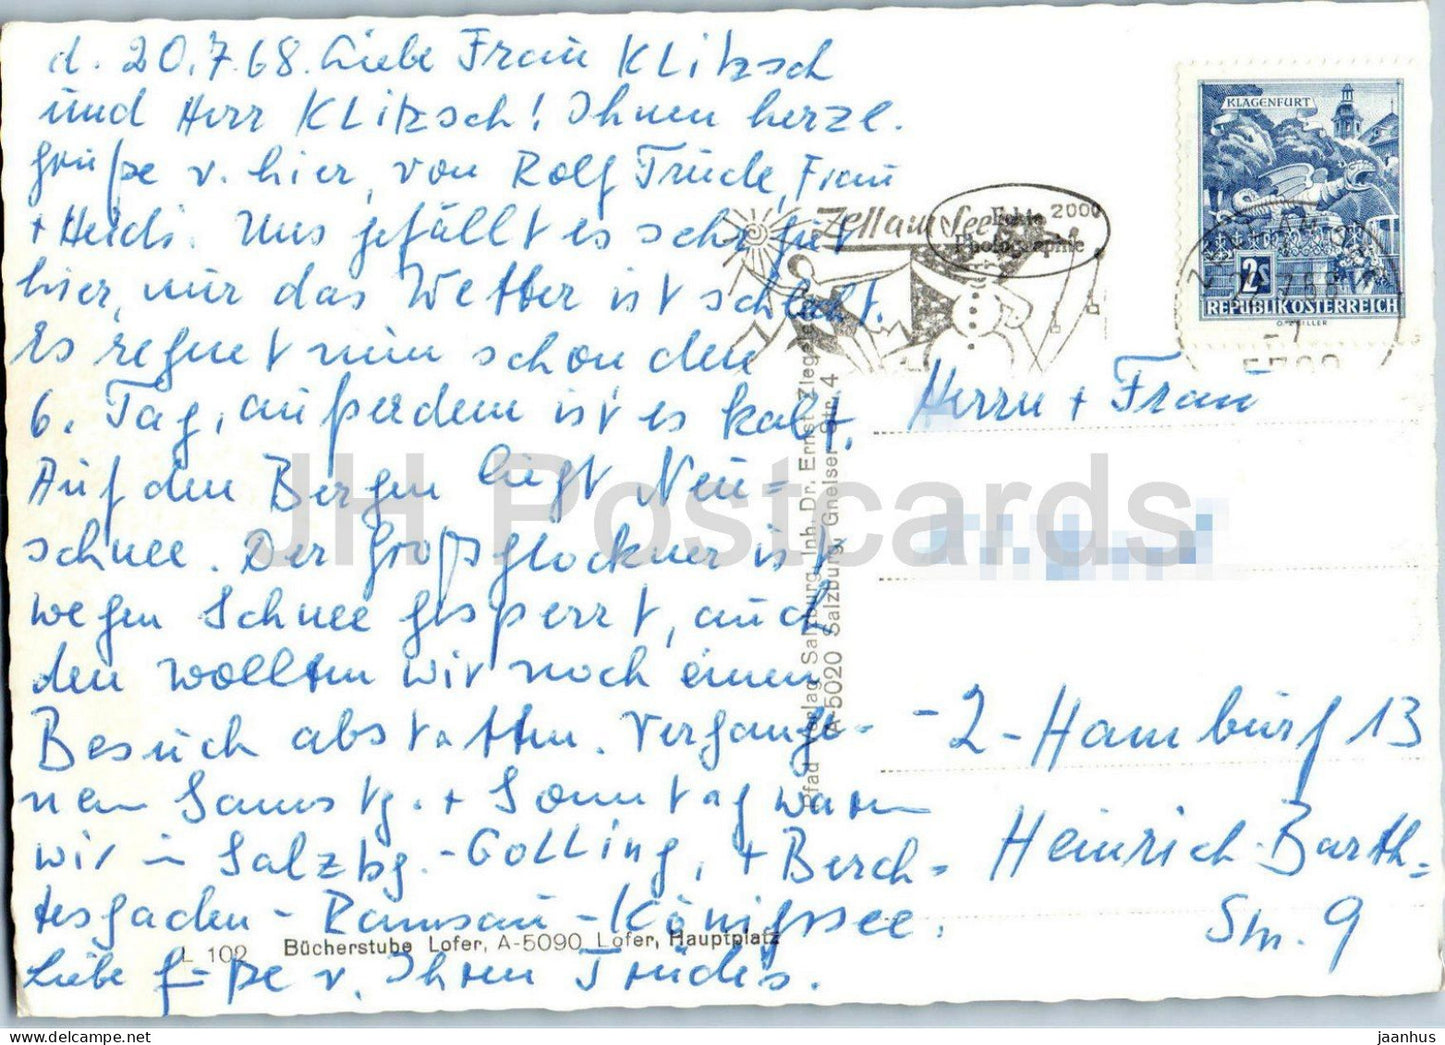 d. 20.7.68. Liebe Frau Klitzsch
und Herr Klitzsch! Ihnen herzl.
Grüße v. hier, von Rolf Trude, Frau
+ Heidi. Uns gefällt es sehr gut
hier, nur das Wetter ist schlecht.
Es regnet nun schon den
6. Tag, außerdem ist es kalt.
Auf den Bergen liegt Neu=
schnee. Der Großglockner ist
wegen Schnee gesperrt, auch
den wollten wir noch einen
Besuch abstatten. Vergange-
nen Samstg. + Sonntag waren
wir in Salzbg.-Golling, + Berch=
tesgaden - Ramsau - Königssee.
Liebe Grüße v. Ihren Trudis.
L 102 Bücherstube Lofer, A-5090 Lofer, Hauptplatz
Pfad Verlag Salzburg, Inh. Dr. Ernst Ziegeleder
A-5020 Salzburg, Gneiser Str. 4
Zell am See
Echte 2000
Photographie
KLAGENFURT
2S
REPUBLIK ÖSTERREICH
5700
Herrn + Frau
-2-Hamburg 13
Heinrich-Barth=
Str. 9
JH Postcards
jaanhus www.delcampe.net